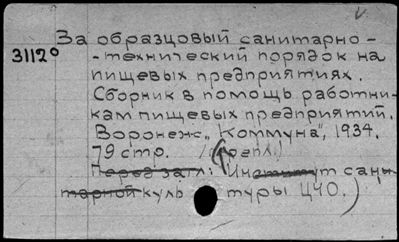 За образцовый санитарно-
31120
-технический порядок на
пищевых предприятиях.
Сборник в помощь работни-
кам пищевых предприятий.
Воронеж, „Коммуна", 1934.
79 стр.
Перед загл.: Институт сани-
тарной культуры ЦЧО.)